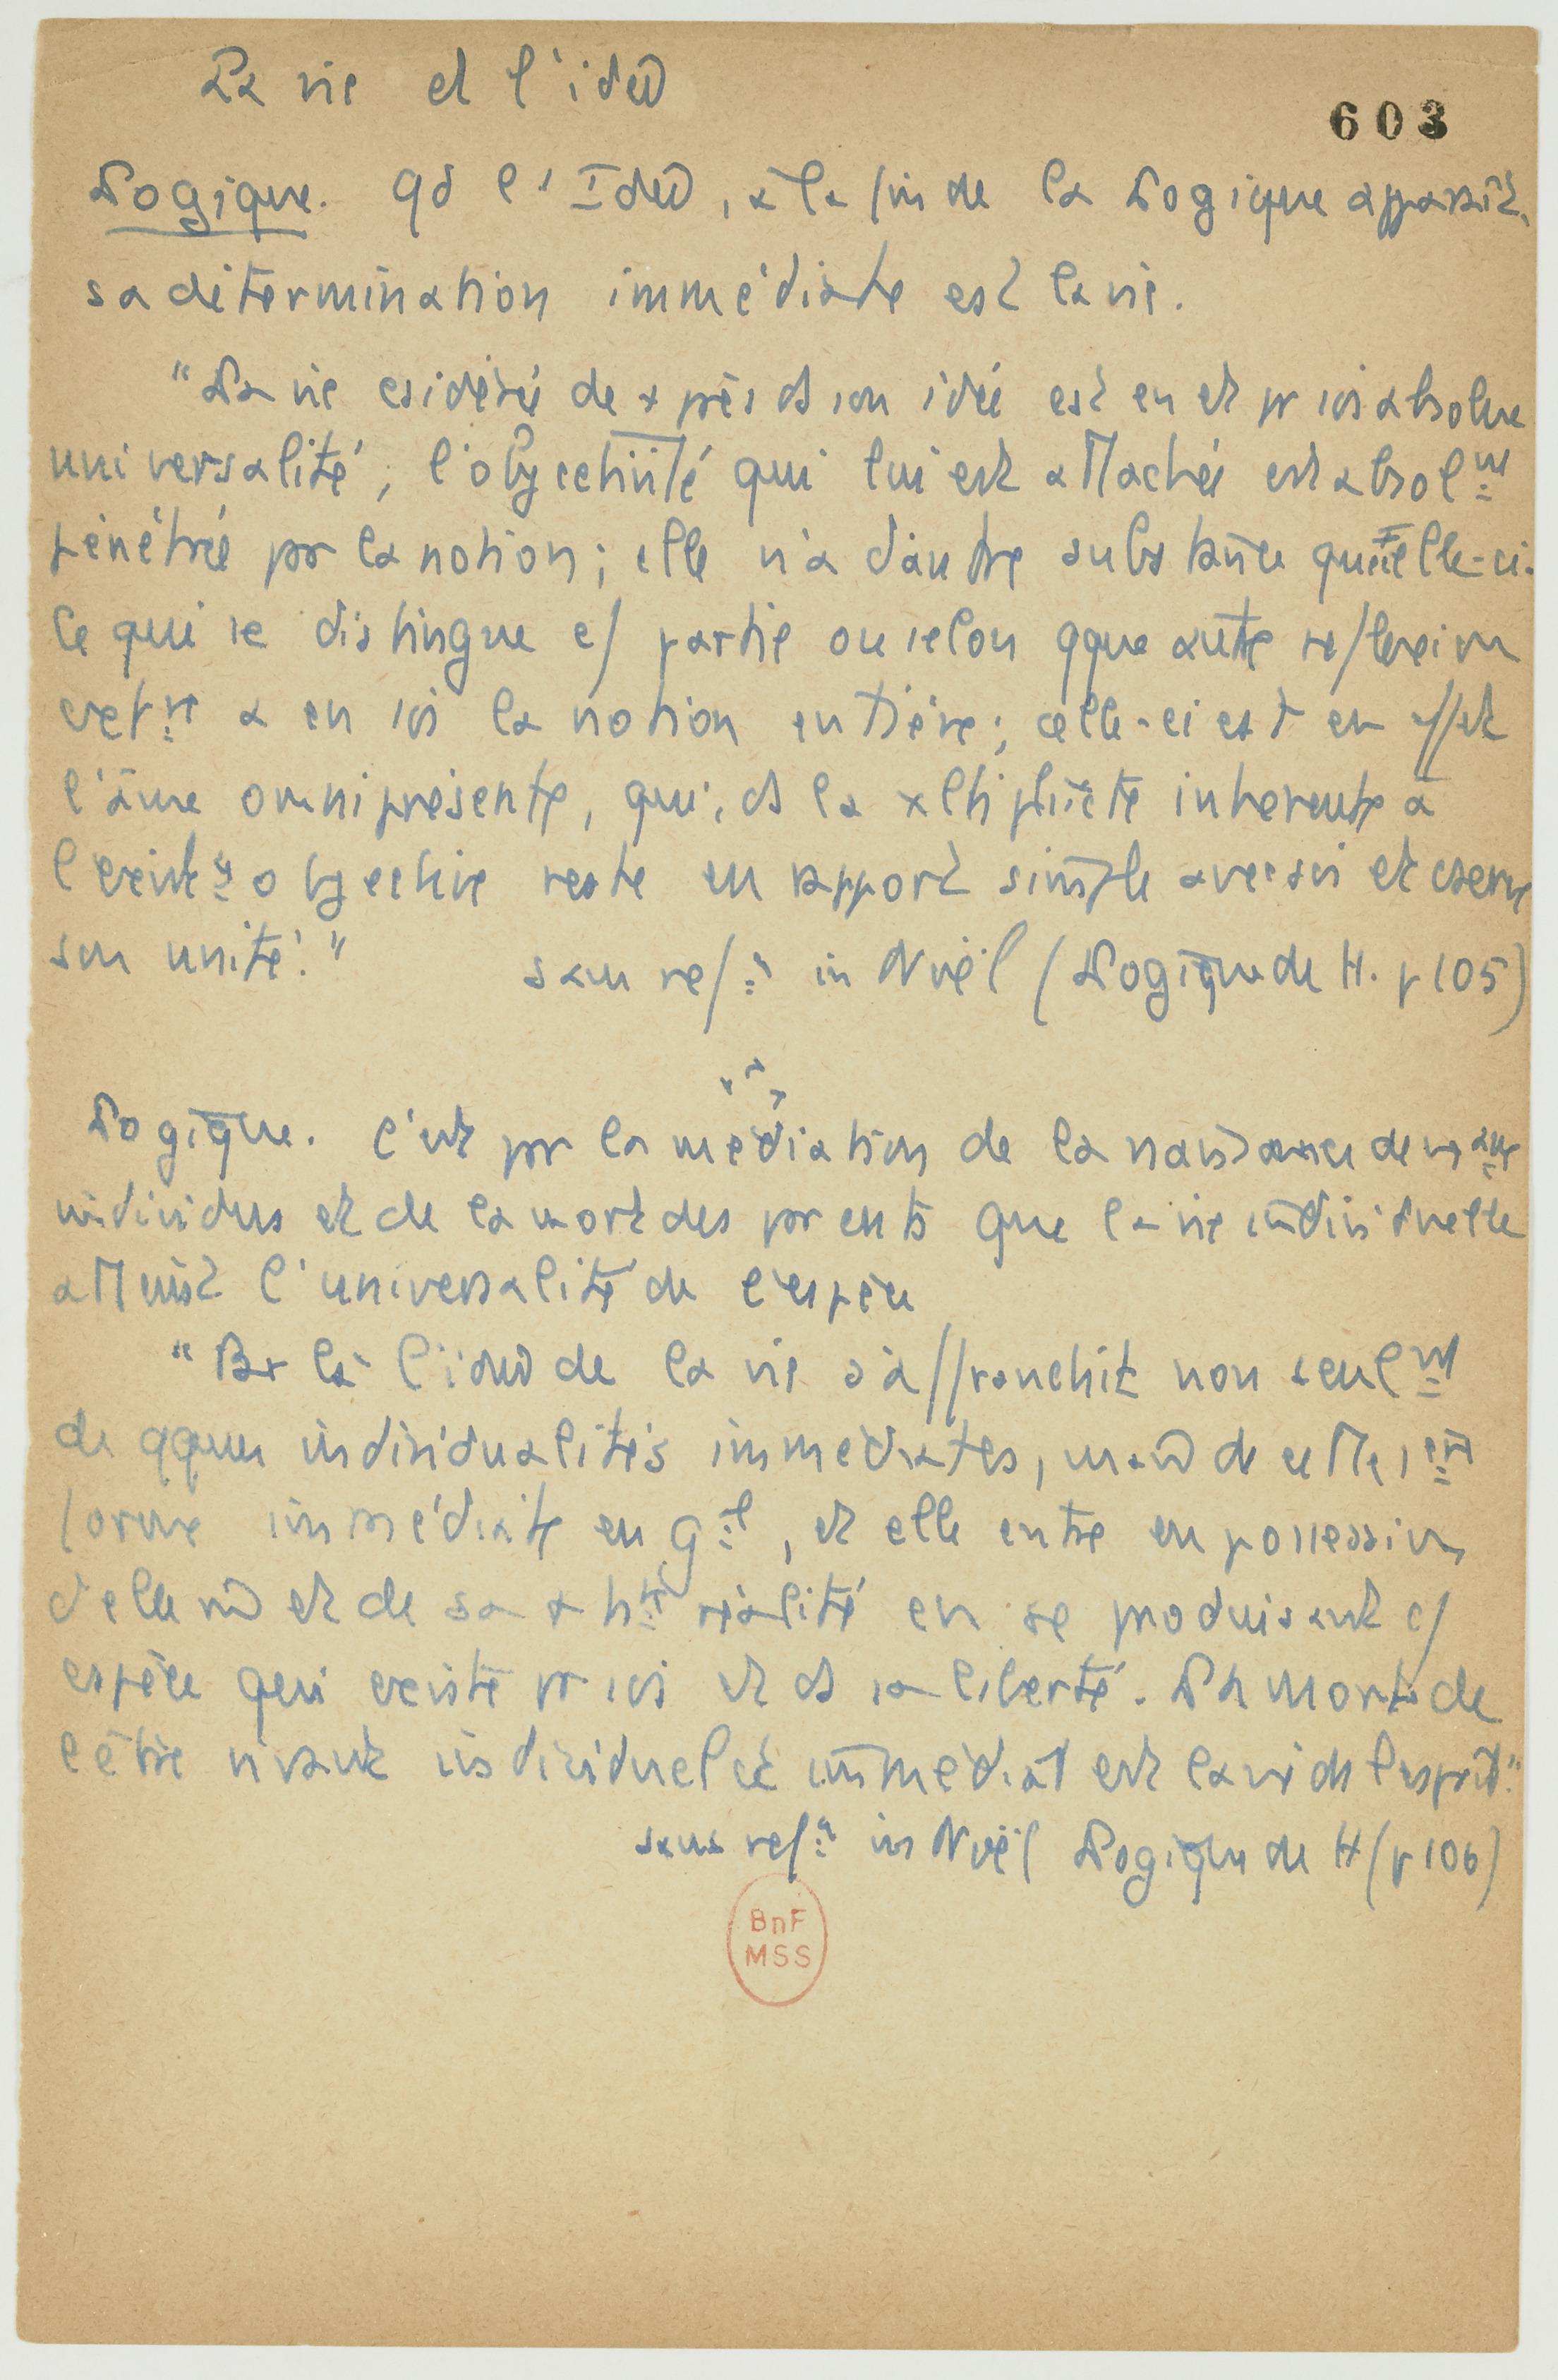 La vie et l'idée
603
Logique. qd l'Idée, à la fin de la Logique apparaît,
sa détermination immédiate est la vie.
"La vie csidérée de + près ds son idée est en et pr soi absolue
universalité ; l'objectivité qui lui est attachée est absolᵐᵗ
pénétrée par la notion ; elle n'a d'autre substance que celle-ci.
Ce qui se distingue c/ partie ou selon qque autre reflexion
extʳᵉ a en soi la notion entière ; celle-ci est en effet
l'âme omniprésente, qui, ds la xltiplicité inhérente à
l'existᶜᵉ objective reste en rapport simple avec soi et cserve
son unité."
sans refᶜᵉ in Noël (Logique de H. p 105)
Logique. C'est par la médiation de la naissance de nx
individus et de la mort des parents que la vie individuelle
atteint l'universalité de l'espèce
"Par là l'idée de la vie s'affranchit non seulᵐᵗ
de qques individualités immédiates, mais de cette 1ᵉʳᵉ
forme immédiate en gᵃˡ, et elle entre en possession
d'elle mê et de sa réalité en se produisant c/
espèce qui existe pr soi et ds sa liberté. La mort de
l'être vivant individuel et immédiat est la vie de l'esprit."
sans refᶜᵉ in Noël Logique de H (p 106)
BnF
MSS